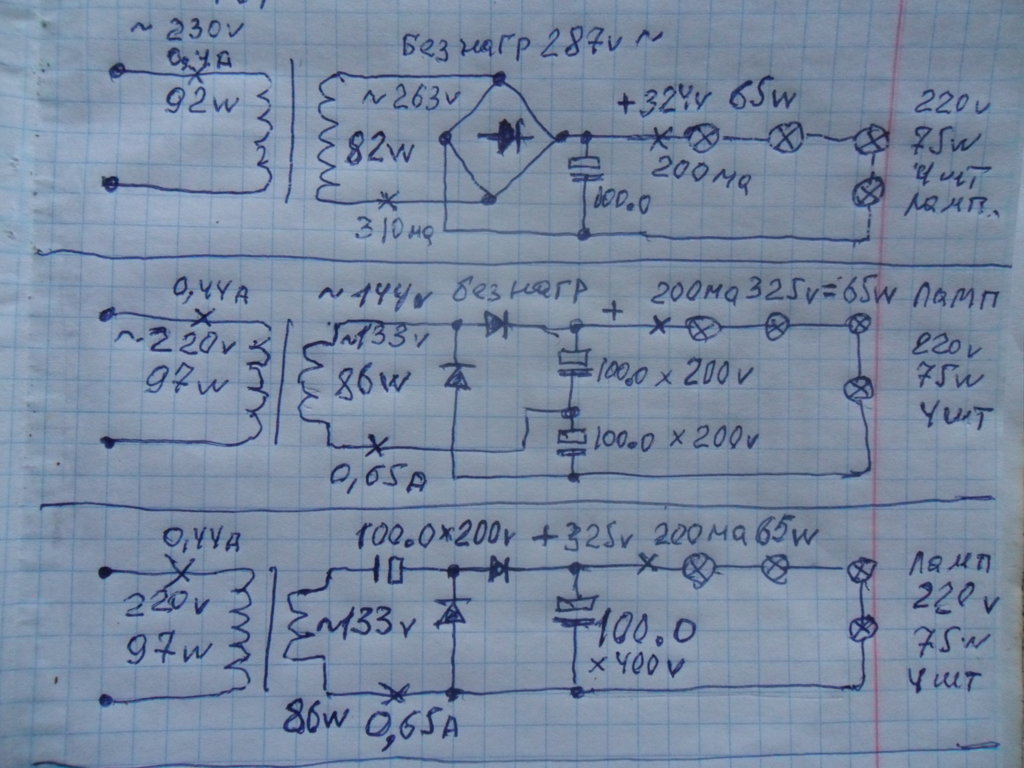 ~ 230v
0,4A
92w
Без нагр 287v ~
~263v
82w
310ма
100.0
+324v 65w
200ма
220v
75w
4 шт
Ламп.
0,44A
~220v
97w
~144v Без нагр
~133v
86w
0,65A
+ 200ма 325v= 65w
100.0 x 200v
100.0 x 200v
Ламп
220v
75w
4 шт
0,44A
220v
97w
100.0x200v
~133v
86w 0,65A
+325v 200ма 65w
100.0
x400v
Ламп
220v
75w
4 шт